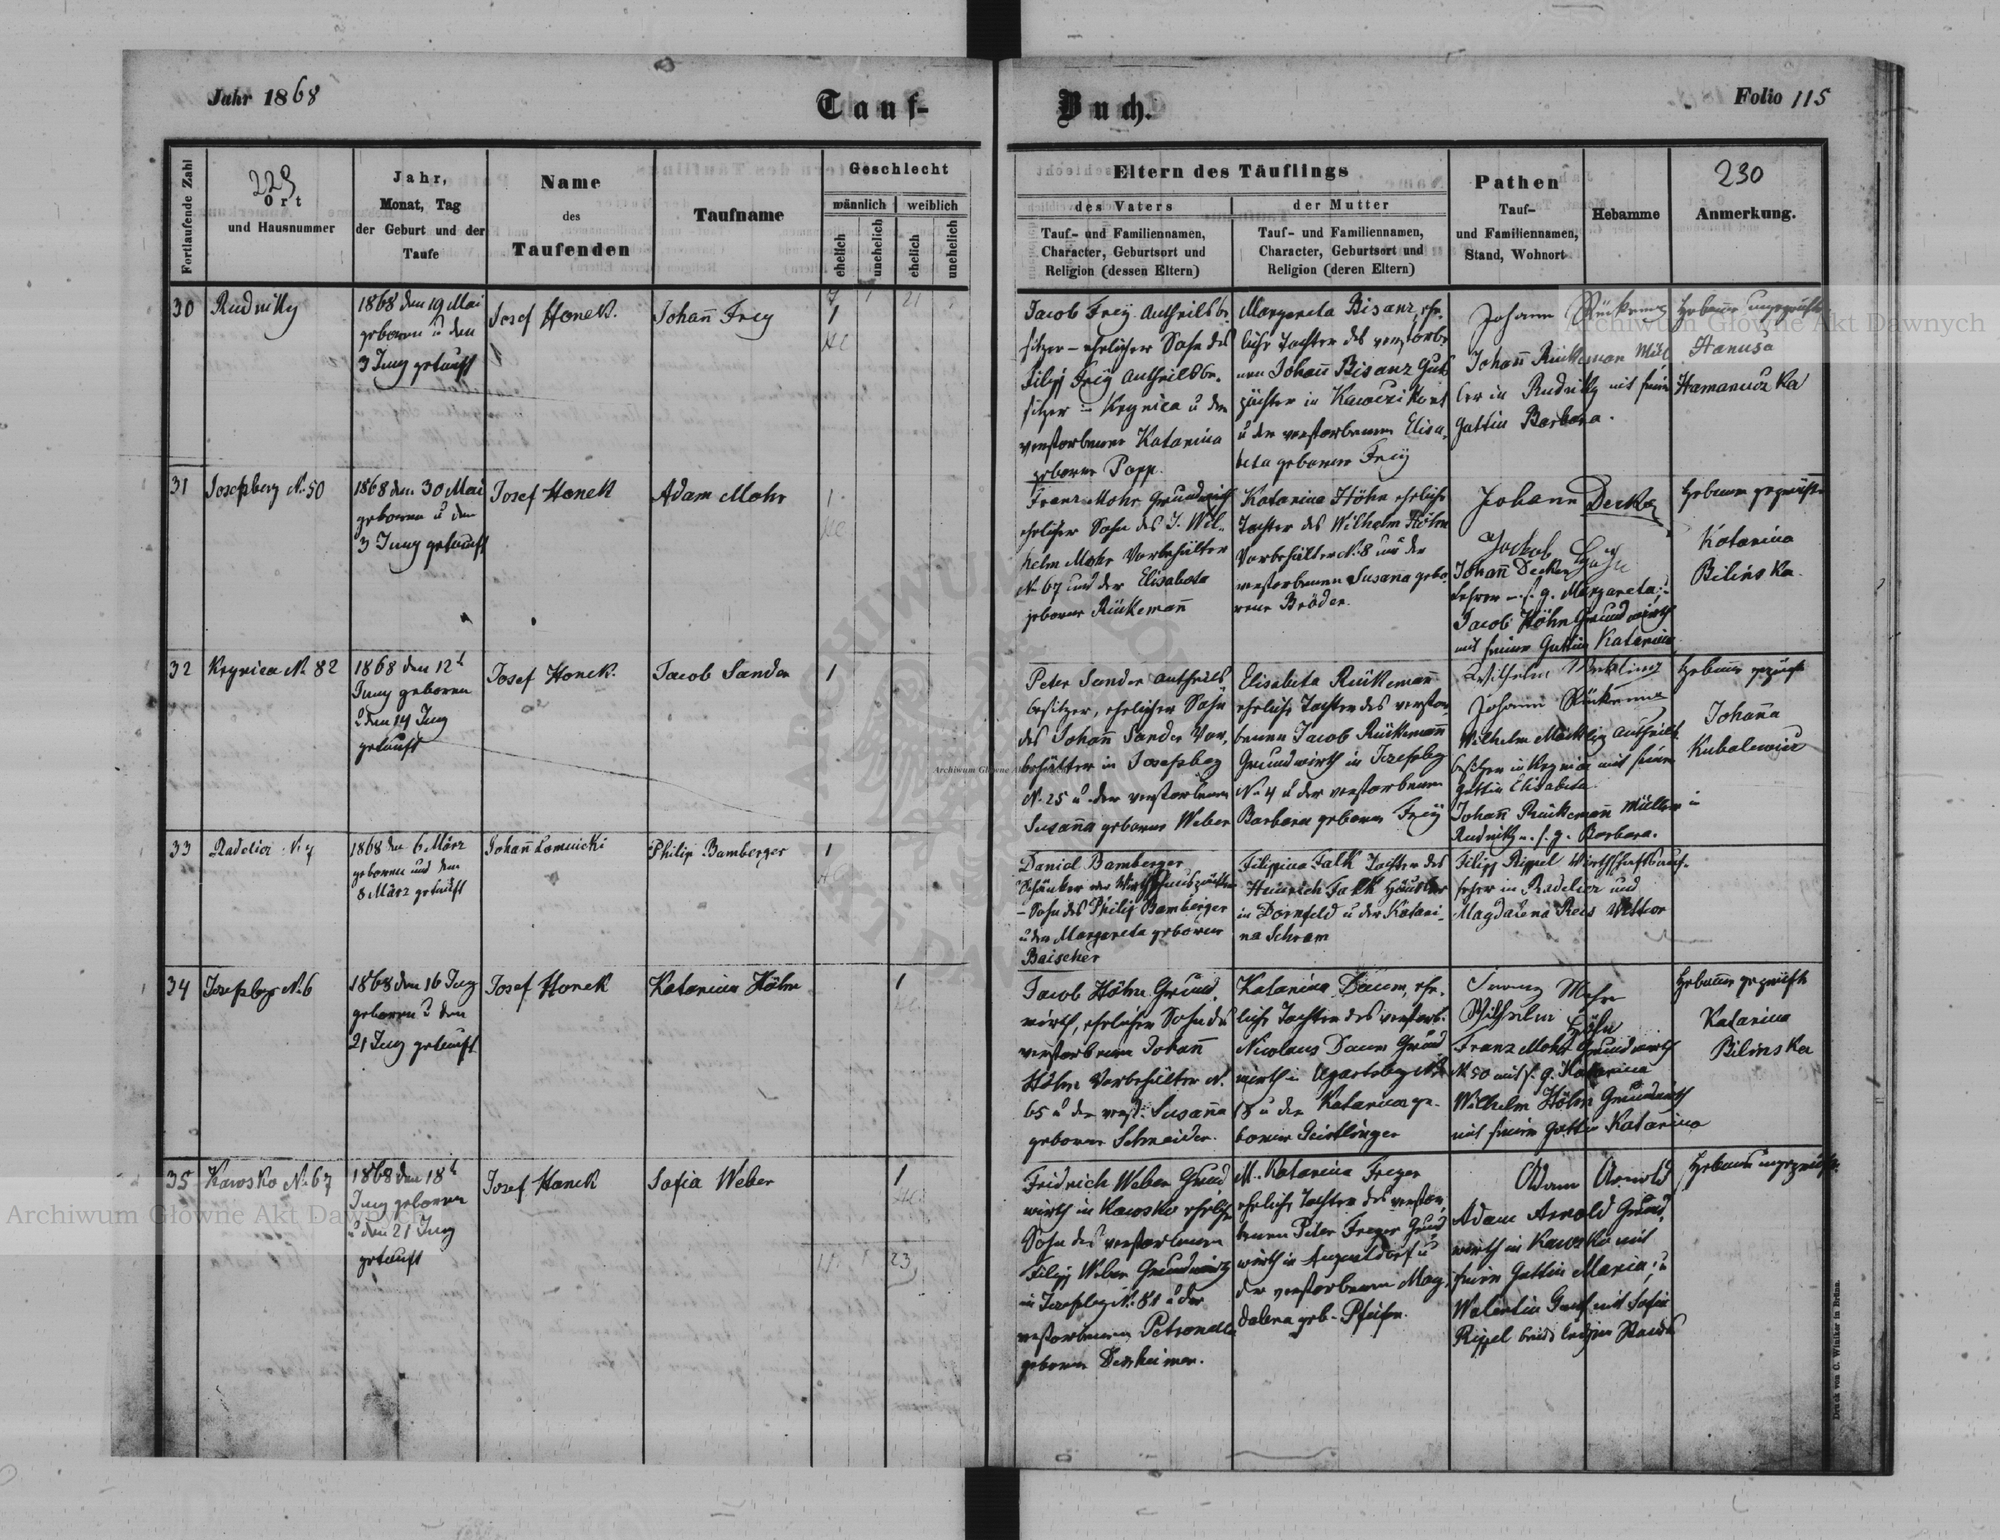 Jahr 1868
Tauf-
Buch.
Folio 115
Fortlaufende Zahl
229
Ort
und Hausnummer
Jahr,
Monat, Tag
der Geburt und der
Taufe
Name
des
Taufenden
Taufname
Geschlecht
männlich
weiblich
ehelich
unehelich
ehelich
unehelich
Eltern des Täuflings
des Vaters
Tauf- und Familiennamen,
Character, Geburtsort und
Religion (dessen Eltern)
der Mutter
Tauf- und Familiennamen,
Character, Geburtsort und
Religion (deren Eltern)
Pathen
Tauf-
und Familiennamen,
Stand, Wohnort
Hebamme
230
Anmerkung.
30
Rudniky
1868 den 19 Mai
geboren u den
3 Juny getauft
Josef Honek.
Johann Frey
1
Jacob Frey Antheilsbe
sitzer – ehelicher Sohn des
Filipp Freÿ Antheilsbe.
sitzer in Krynica u der
verstorbenen Katarina
geborne Popp.
Margareta Bisanz, ehe.
liche Tochter des verstorbe
nen Johann Bisanz Guts
pächter in
u der verstorbenen Elisa,
beta geborenen Freÿ
Johann Rückemann
Johann Rückeman Mül
ler in Rudniky mit seine
Gattin Barbara.
Hebame ungeprüft
Hanusa
31
Josefsberg No 50
1868 den 30 Mai
geboren u den
3 Juny getauft
Josef Honek
Adam Mohr
1
Franz Mohr Grundwirth
ehelicher Sohn des J. Wil.
helm Mohr Vorbehälter
No 67 und der Elisabeta
geborne Rückemann
Katarina Höhn eheliche
Tochter des Wilhelm Höhn
Vorbehälter No 8 und der
verstorbenen Susanna gebo
rene Bröder.
Johann Decker
Jackob Höhn
Johann Decker
Lehrer m. s. g. Margareta; u
Jacob Höhn Grundwirth
mit seiner Gattin Katarina
Hebamme geprüfte
Katarina
Bilinska.
32
Krynica No 82
1868 den 12t
Juny geboren
u den 14 Juny
getauft
Josef Honek.
Jacob Sander
1
Peter Sander Antheils
besitzer, ehelicher Sohn
des Johann Sander Vor,
behälter in Josefsberg
No. 25 u der verstorbenen
Susanna geborne Weber
Elisabeta Rückemann
eheliche Tochter des verstor
benen Jacob Rückemann
Grundwirth in Josefsberg
No 4 u der verstorbenen
Barbara geborne Freÿ
Wilhelm Mecklinz
Johann Rückemann
Wilhelm Mecklig Antheils
besitzer in Krynica mit seiner
Gattin Elisabeta
Johann Rückemann Müller in
Rudniky m. s. g. Barbara.
Hebame geprüft
Johanna
Kubalewicz
33
Radelicz No 7
1868 den 6 März
geboren und den
8 März getauft
Johann Lomnicki
Philip Bamberger
1
Daniel Bamberger
Schänker des Wirthshauspächter
– Sohn des Philip Bamberger
u der Margareta geborene
Baischer
Filippina Falk Tochter des
Heinrich Falk Häusler
in Dornfeld u der Katari
na Schram
Filipp Rippel Wirthschaftsauf-
seher in Radelicz und
Magdalena Reis
34
Josefsberg No 6
1868 den 16 Juny
geboren u den
21 Juny getauft
Josef Honek
Katarina Höhn
1
Jacob Höhn Grund,
wirth, ehelicher Sohn des
verstorbenen Johann
Höhn Vorbehälter No.
65 u der verst. Susanna
geborne Schneider.
Katarina Daum, ehe.
liche Tochter des verstorb.
Nicolaus Daum Grund
wirth in Ugartsberg No
18 u der Katarina ge.
borne Geistlinger
Franz Mohr
Wilhelm Höhn
Franz Mohr Grundwirth
No 50 mit s. g. Katarina
Wilhelm Höhn Grundwirth
mit seiner Gattin Katarina
Hebamme geprüfte
Katarina
Bilinska
35
Kawsko No 67
1868 den 18t
Juny geboren
u den 21 Juny
getauft
Josef Honek
Sofia Weber
1
23
Fridrich Weber Grund
wirth in Kawsko ehelicher
Sohn des verstorbenen
Filipp Weber Grundwirth
in Josefsberg No. 81 u der
verstorbenen Petronela
geborne Desheimer.
M. Katarina Freger
eheliche Tochter des verstor,
benen Peter Freger Grund
wirth in Augustdorf u
der verstorbenen Mag,
dalena geb. Pfeifer.
Adam Arnold
Adam Arnold Grund,
wirth in Kawsko mit
seiner Gattin Maria; u
Walentin Graf mit Sofia
Rippel beide ledigen Stands
Hebame ungeprüft
Druck von C. Winiker in Brünn.
Archiwum Główne Akt Dawnych
Archiwum Główne Akt Dawnych
Archiwum Główne Akt Dawnych